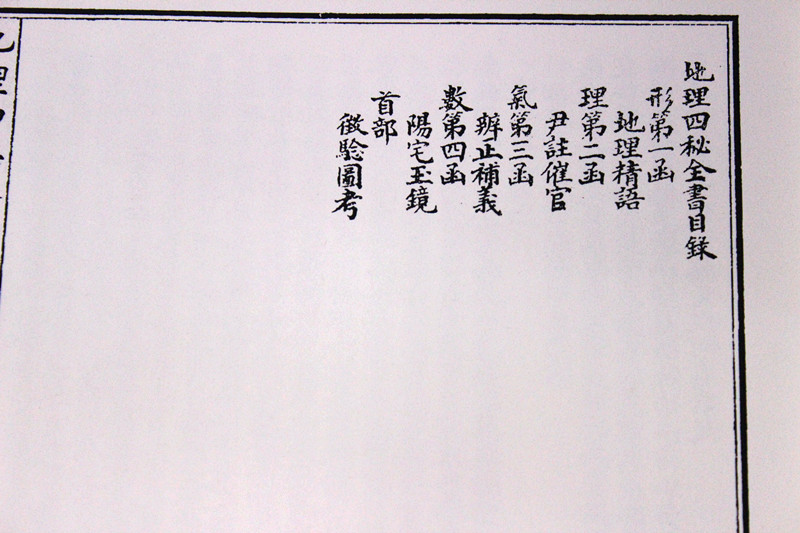 地理四秘全書目錄
形第一函
地理精語
理第二函
尹註催官
氣第三函
辨正補義
數第四函
陽宅玉鏡
首部
徵驗圖考